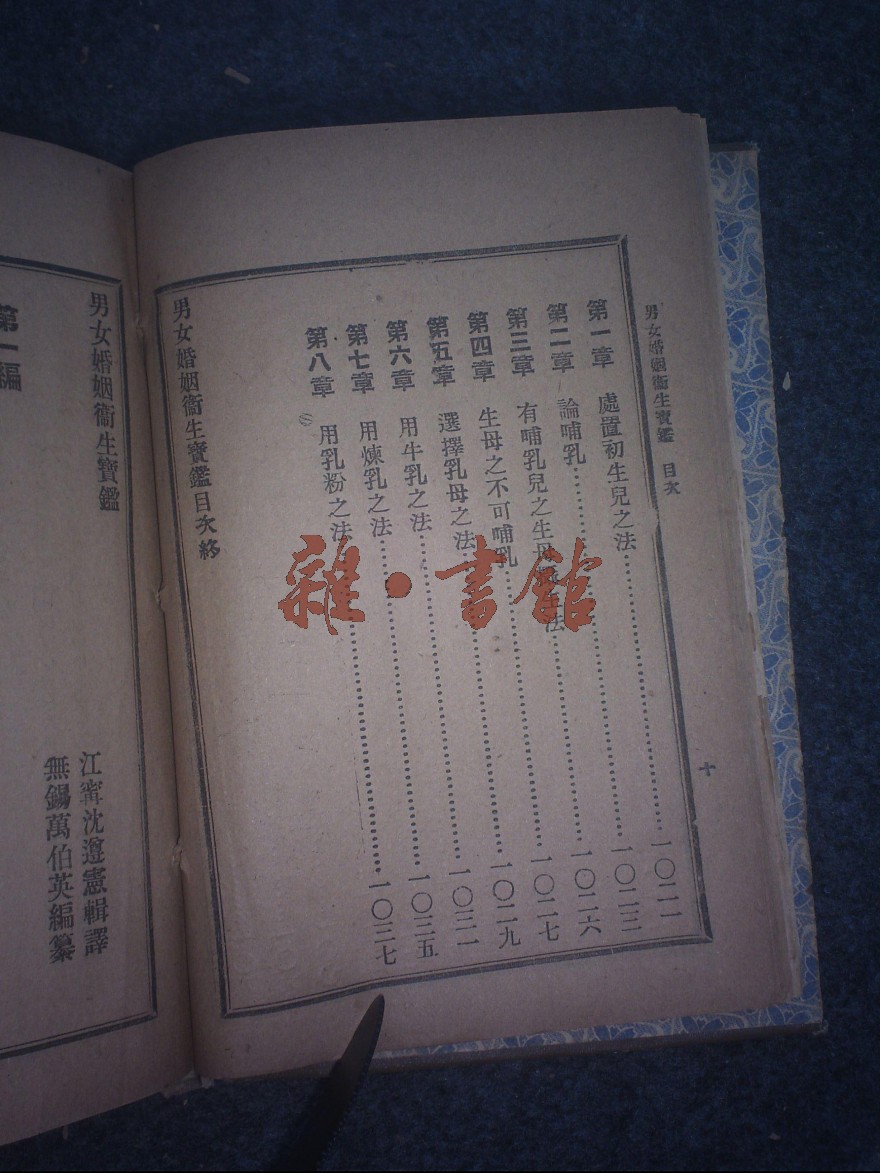 男女婚姻衞生寶鑑 目次
十
第一章 處置初生兒之法……一〇二一
第二章 論哺乳……一〇二三
第三章 有哺乳兒之生母 法……一〇二六
第四章 生母之不可哺乳……一〇二七
第五章 選擇乳母之法……一〇二九
第六章 用牛乳之法……一〇三一
第七章 用煉乳之法……一〇三五
第八章 用乳粉之法……一〇三七
男女婚姻衞生寶鑑目次終
男女婚姻衞生寶鑑
江寧沈遵憲輯譯
無錫萬伯英編纂
第一編
雜·書館